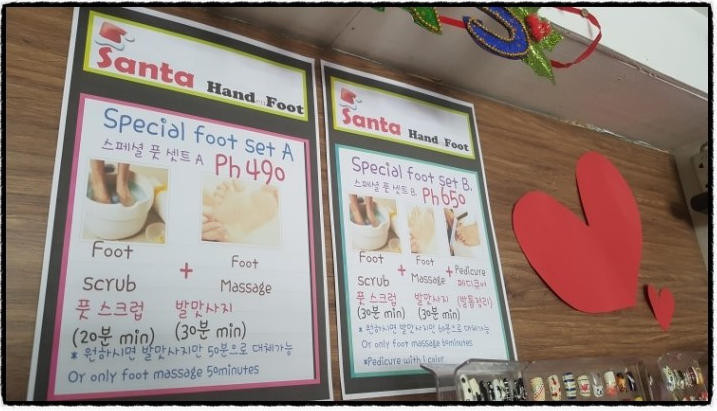 Santa Hand Foot
Special foot set A
스페셜 풋 셋트 A
Ph 490
Foot scrub + Foot Massage
풋 스크럽 발맛사지
(20분 min) (30분 min)
* 원하시면 발맛사지만 50분으로 대체가능
Or only foot massage 50minutes
Santa Hand Foot
Special foot set B.
스페셜 풋 셋트 B.
Ph650
Foot scrub + Foot Massage + Pedicure
페디큐어
풋 스크럽 발맛사지 (발톱정리)
(30분 min) (30분 min)
* 원하시면 발맛사지만 60분으로 대체가능
Or only foot massage 60minutes
*Pedicure with 1 color